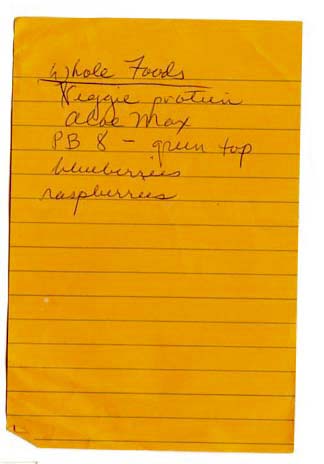 Whole Foods
Veggie protein
aloe Max
PB 8 - green top
blueberries
raspberries